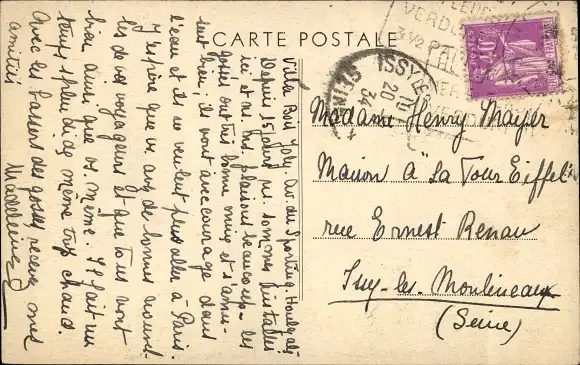 CARTE POSTALE
Villa Bois Joly. Av. du Sporting. Houlgate
Depuis 15 jours ns. sommes installés
ici et ns. ns. plaisons beaucoup - les
gosses ont très bonne mine et s'amu-
sent bien. ils vont avec courage dans
l'eau et ils ne veulent plus aller à Paris.
J'espère que vs avez de bonnes nouvel-
les de vos voyageurs et que tous vont
bien ainsi que vs. même. Il fait un
temps splendide même trop chaud.
Avec les baisers des gosses recevez mes
amitiés
Madeleine
Madame Henry Mayer
Maison à "La Tour Eiffel"
rue Ernest Renan
Issy-les-Moulineaux
(Seine)
ISSY
20
34
SEINE
40